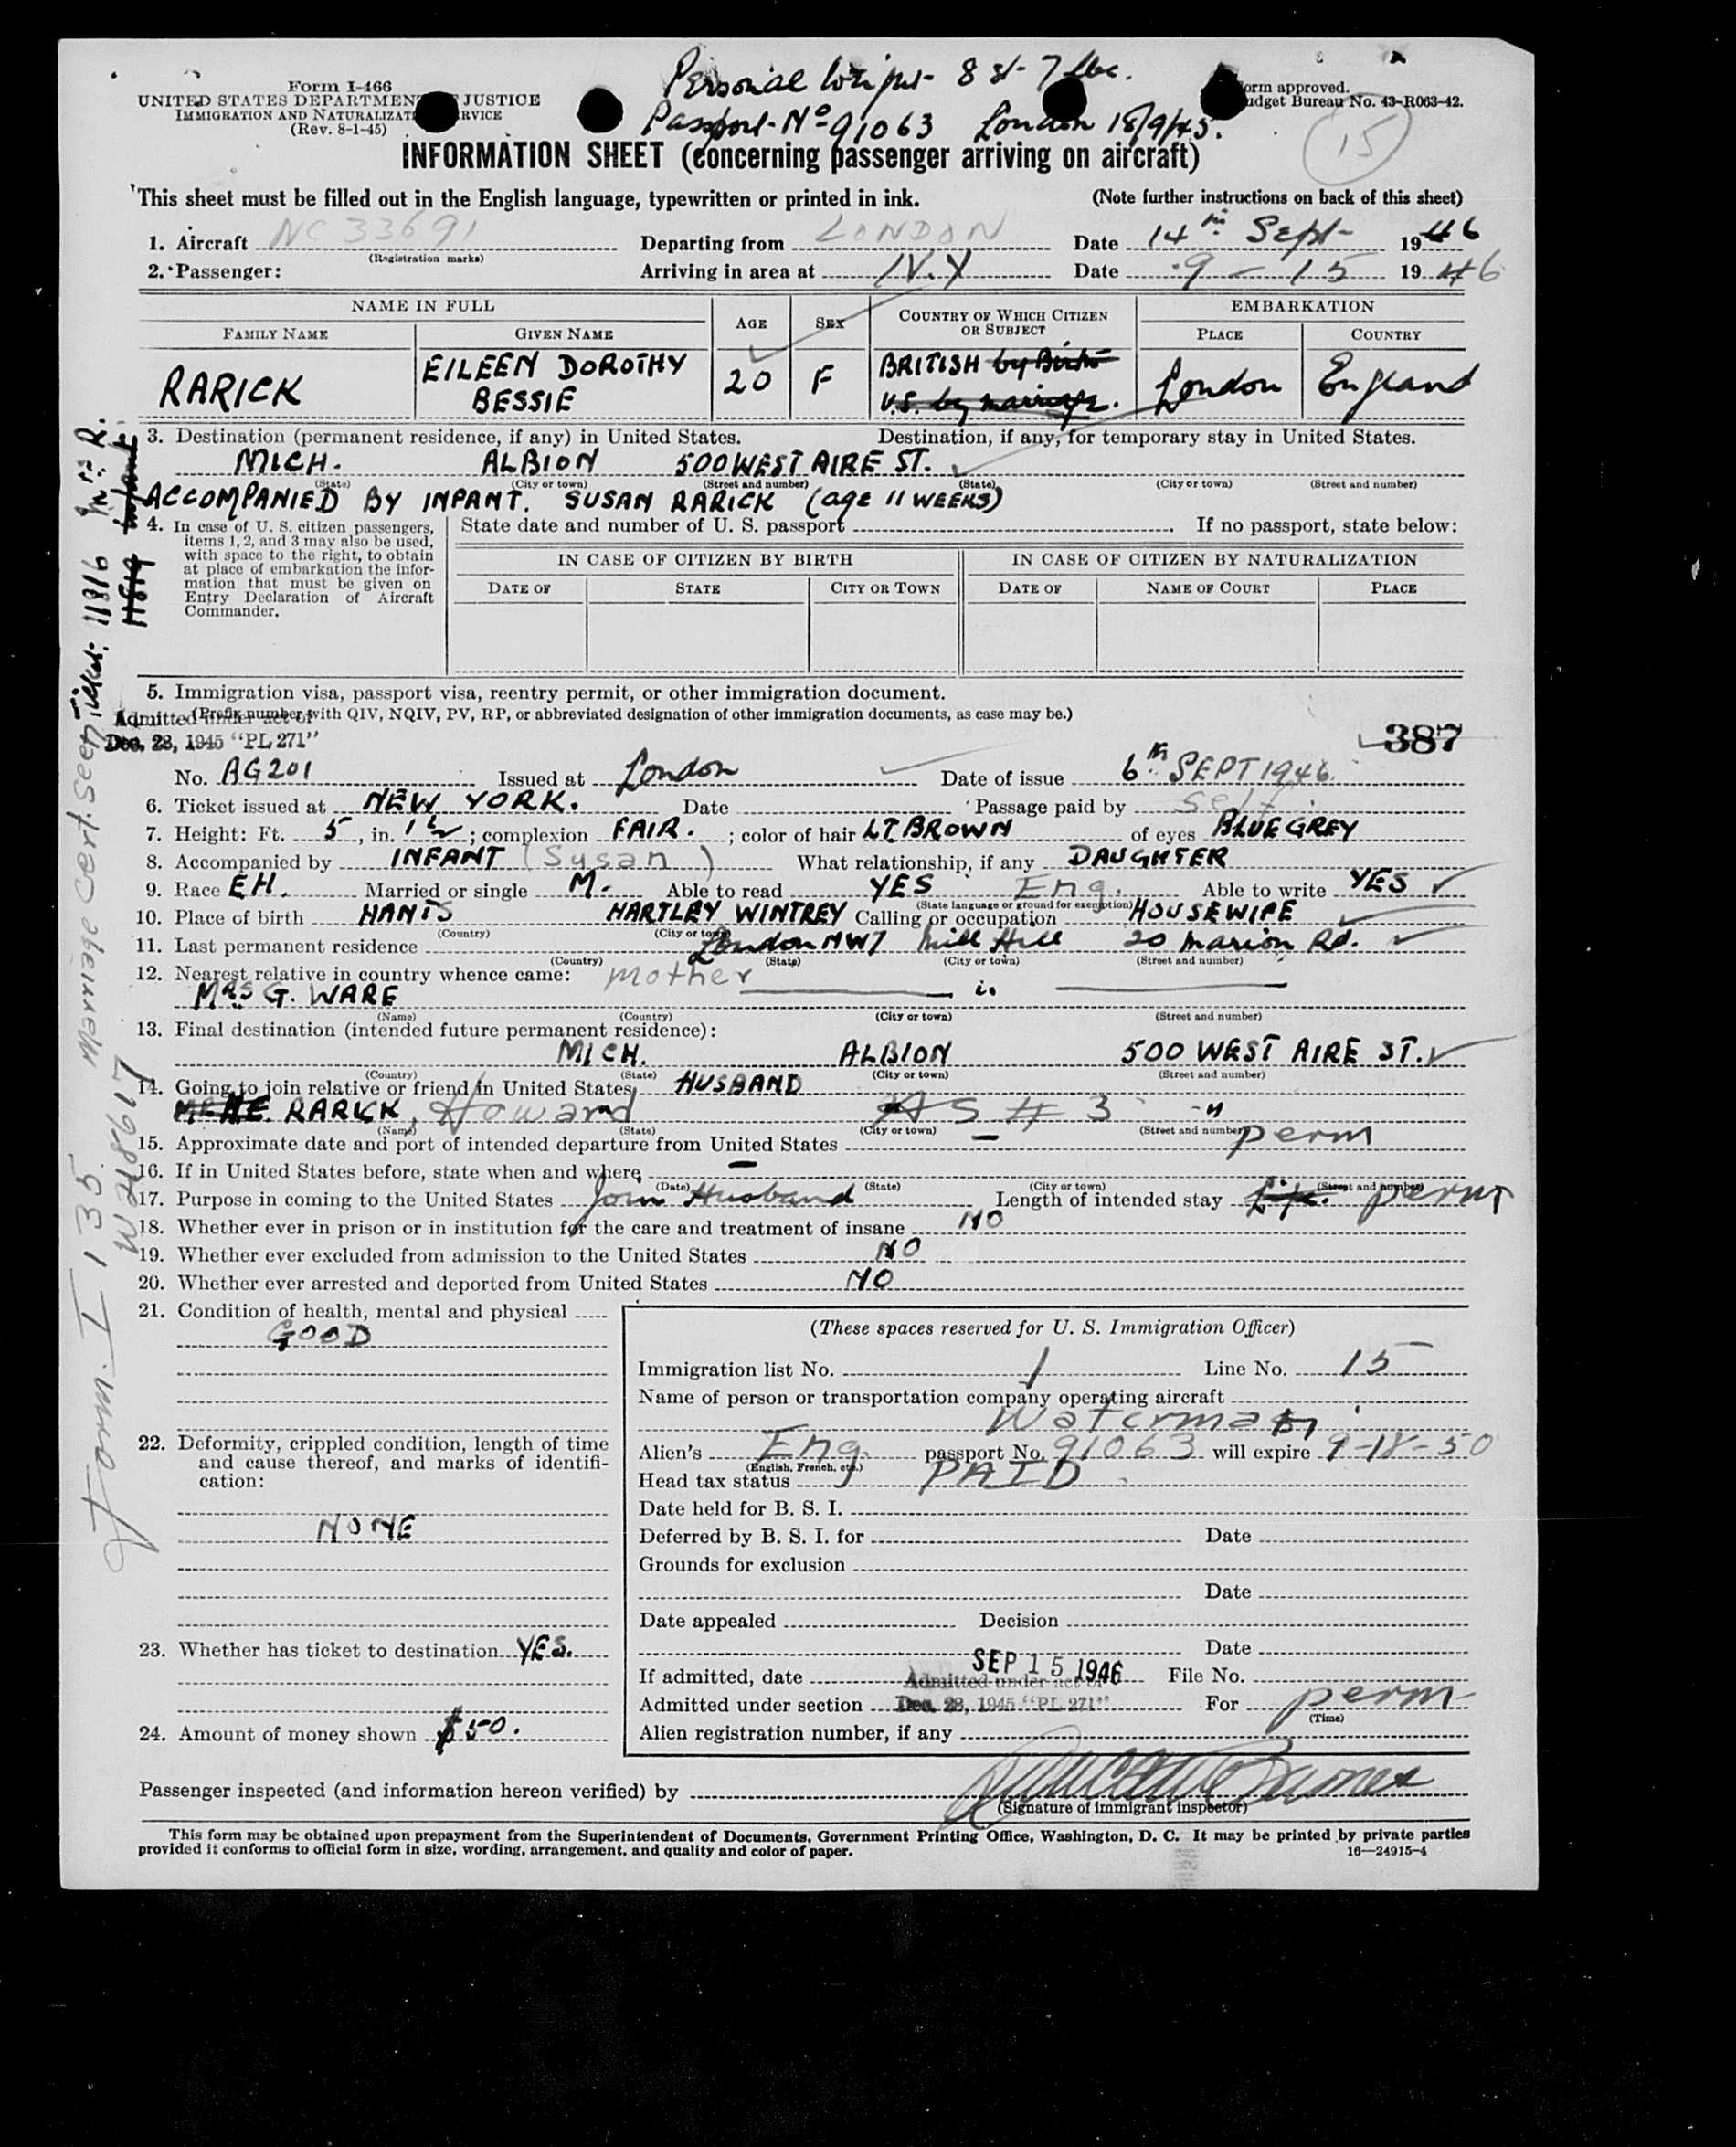 Personal Weight 8 st- 7 lbs.
Form I-466
UNITED STATES DEPARTMENT JUSTICE
IMMIGRATION AND NATURALIZAT RVICE
(Rev. 8-1-45)
orm approved.
udget Bureau No. 43-R063-42.
Passport- No 91063 London 18/9/45.
15
INFORMATION SHEET (concerning passenger arriving on aircraft)
This sheet must be filled out in the English language, typewritten or printed in ink. (Note further instructions on back of this sheet)
1. Aircraft NC 33691 Departing from LONDON Date 14th Sept- 1946
(Registration marks)
2. Passenger: Arriving in area at N.Y Date 9 - 15 1946
NAME IN FULL AGE SEX COUNTRY OF WHICH CITIZEN OR SUBJECT EMBARKATION
FAMILY NAME GIVEN NAME PLACE COUNTRY
RARICK EILEEN DOROTHY BESSIE 20 F BRITISH by Birth U.S. by marriage. London England
3. Destination (permanent residence, if any) in United States. Destination, if any, for temporary stay in United States.
MICH. ALBION 500 WEST AIRE ST.
(State) (City or town) (Street and number) (State) (City or town) (Street and number)
ACCOMPANIED BY INFANT. SUSAN RARICK (age 11 WEEKS)
4. In case of U. S. citizen passengers, items 1, 2, and 3 may also be used, with space to the right, to obtain at place of embarkation the information that must be given on Entry Declaration of Aircraft Commander.
State date and number of U. S. passport . If no passport, state below:
IN CASE OF CITIZEN BY BIRTH IN CASE OF CITIZEN BY NATURALIZATION
DATE OF STATE CITY OR TOWN DATE OF NAME OF COURT PLACE
5. Immigration visa, passport visa, reentry permit, or other immigration document.
(Prefix number with QIV, NQIV, PV, RP, or abbreviated designation of other immigration documents, as case may be.)
Admitted under act of
Dec. 28, 1945 "PL 271"
387
No. AG201 Issued at London Date of issue 6th SEPT 1946
6. Ticket issued at NEW YORK. Date Passage paid by self.
7. Height: Ft. 5, in. 1½; complexion FAIR. ; color of hair LT BROWN of eyes BLUE GREY
8. Accompanied by INFANT (Susan) What relationship, if any DAUGHTER
9. Race EH. Married or single M. Able to read YES Eng. Able to write YES
(State language or ground for exemption)
10. Place of birth HANTS HARTLEY WINTREY Calling or occupation HOUSEWIFE
(Country) (City or town)
11. Last permanent residence London NW7 Mill Hill 20 Marion Rd.
(Country) (State) (City or town) (Street and number)
12. Nearest relative in country whence came: mother
MRS G. WARE
(Name) (Country) (City or town) (Street and number)
13. Final destination (intended future permanent residence):
MICH. ALBION 500 WEST AIRE ST.
(Country) (State) (City or town) (Street and number)
14. Going to join relative or friend in United States, HUSBAND
H.E. RARICK, Howard AS # 3
(Name) (State) (City or town) (Street and number)
15. Approximate date and port of intended departure from United States — perm
16. If in United States before, state when and where —
(Date) (State) (City or town) (Street and number)
17. Purpose in coming to the United States Join Husband Length of intended stay Life. perm
18. Whether ever in prison or in institution for the care and treatment of insane NO
19. Whether ever excluded from admission to the United States NO
20. Whether ever arrested and deported from United States NO
21. Condition of health, mental and physical
GOOD
22. Deformity, crippled condition, length of time and cause thereof, and marks of identification:
NONE
23. Whether has ticket to destination YES.
24. Amount of money shown $50.
(These spaces reserved for U. S. Immigration Officer)
Immigration list No. 1 Line No. 15
Name of person or transportation company operating aircraft
Waterman
Alien's Eng. passport No. 91063 will expire 9-18-50
(English, French, etc.)
Head tax status PAID
Date held for B. S. I.
Deferred by B. S. I. for Date
Grounds for exclusion
Date
Date appealed Decision
Date
If admitted, date SEP 15 1946 File No.
Admitted under act of
Admitted under section Dec. 28, 1945 "PL 271" For perm
(Time)
Alien registration number, if any
Passenger inspected (and information hereon verified) by
(Signature of immigrant inspector)
This form may be obtained upon prepayment from the Superintendent of Documents, Government Printing Office, Washington, D. C. It may be printed by private parties
provided it conforms to official form in size, wording, arrangement, and quality and color of paper. 16—24915-4
Form I 135 Marriage Cert. Seen
Ticket: 11816
infant